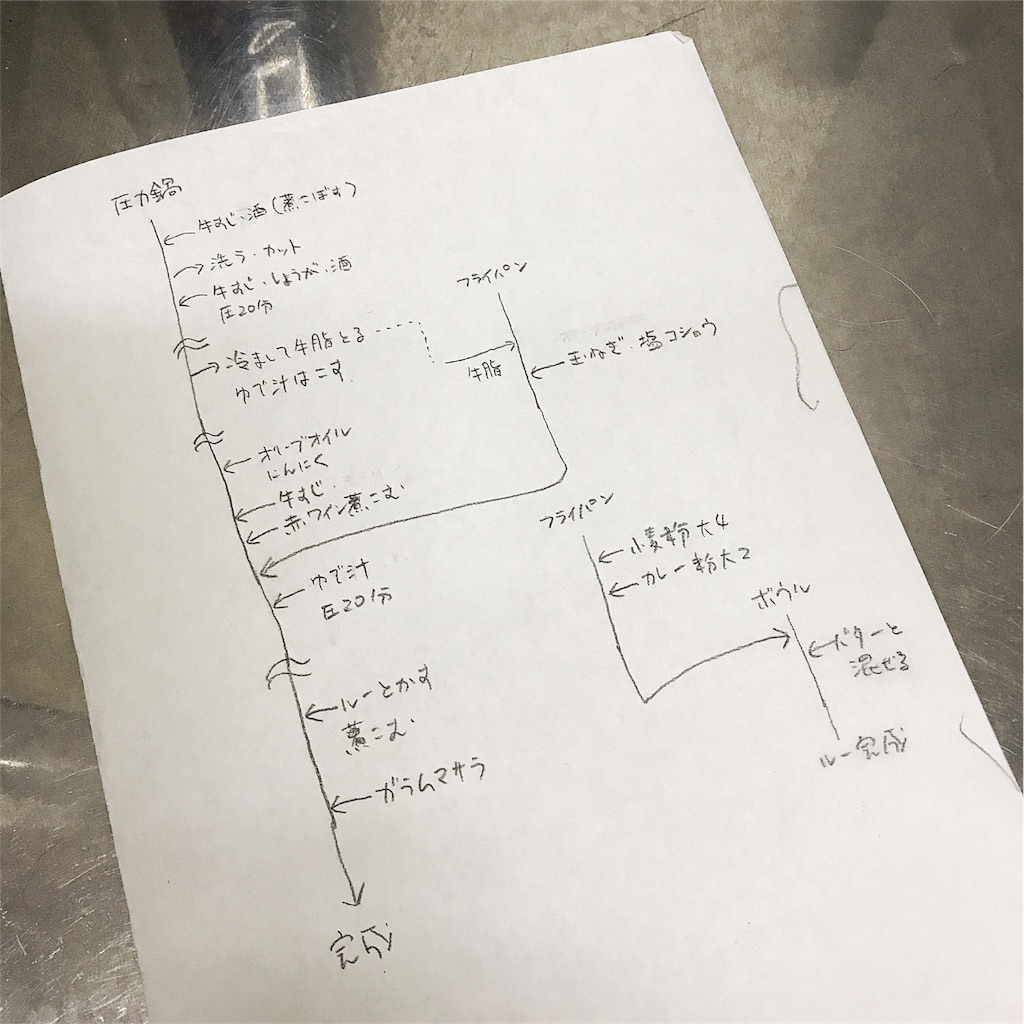 圧力鍋
牛すじ・酒(煮こぼす)
洗う・カット
牛すじ・しょうが・酒
圧20分
冷まして牛脂とる
ゆで汁はこす
オリーブオイル
にんにく
牛すじ
赤ワイン煮こむ
ゆで汁
圧20分
ルーとかす
煮こむ
ガラムマサラ
完成
フライパン
牛脂
玉ねぎ・塩コショウ
フライパン
小麦粉大4
カレー粉大2
ボウル
バターと
混ぜる
ルー完成